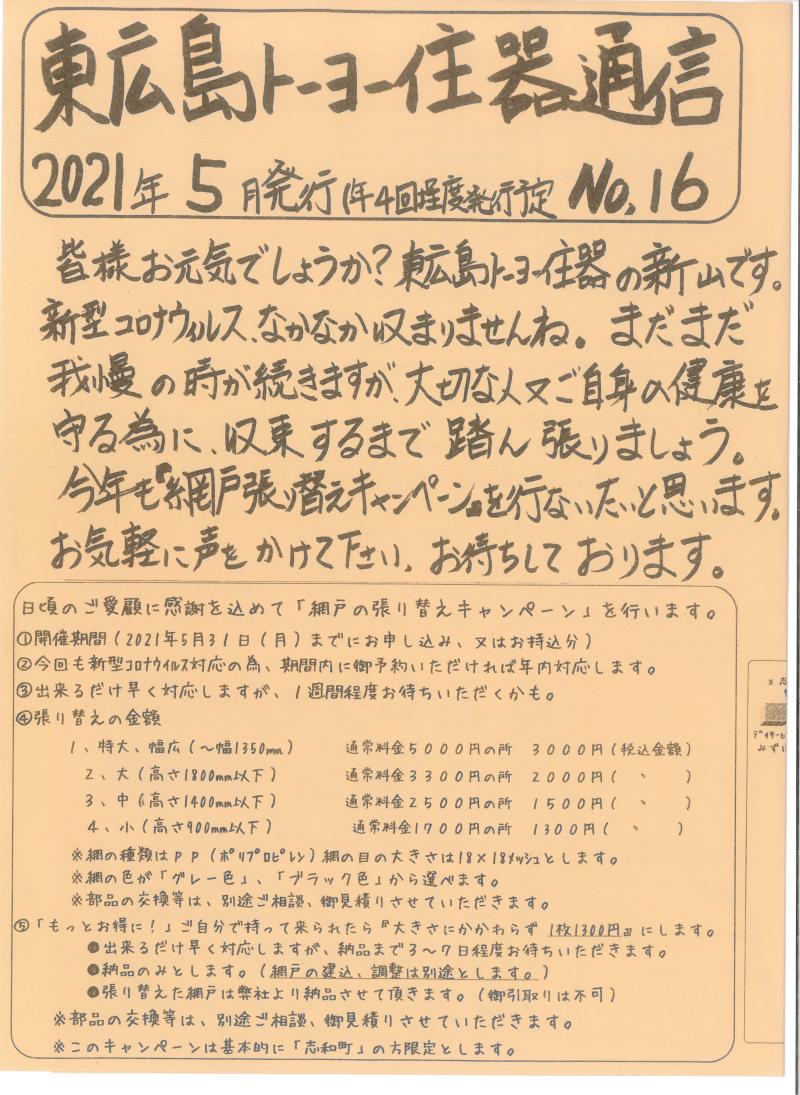 東広島トーヨー住器通信
2021年 5月発行 1年4回程度発行予定 No,16
皆様お元気でしょうか?東広島トーヨー住器の新山です。
新型コロナウィルス、なかなか収まりませんね。まだまだ
我慢の時が続きますが、大切な人又ご自身の健康を
守る為に、収束するまで踏ん張りましょう。
今年も『網戸張り替えキャンペーン』を行ないたいと思います。
お気軽に声をかけて下さい。お待ちしております。
日頃のご愛顧に感謝を込めて「網戸の張り替えキャンペーン」を行います。
①開催期間(2021年5月31日(月)までにお申し込み、又はお持込分)
②今回も新型コロナウイルス対応の為、期間内に御予約いただければ年内対応します。
③出来るだけ早く対応しますが、1週間程度お待ちいただくかも。
④張り替えの金額
1、特大、幅広(〜幅1350mm) 通常料金5000円の所 3000円(税込金額)
2、大(高さ1800mm以下) 通常料金3300円の所 2000円( 〃 )
3、中(高さ1400mm以下) 通常料金2500円の所 1500円( 〃 )
4、小(高さ900mm以下) 通常料金1700円の所 1300円( 〃 )
※網の種類はPP(ポリプロピレン)網の目の大きさは18×18メッシュとします。
※網の色が「グレー色」、「ブラック色」から選べます。
※部品の交換等は、別途ご相談、御見積りさせていただきます。
⑤「もっとお得に!」ご自分で持って来られたら『大きさにかかわらず 1枚1300円』にします。
●出来るだけ早く対応しますが、納品まで3〜7日程度お待ちいただきます。
●納品のみとします。(網戸の建込、調整は別途とします。)
●張り替えた網戸は弊社より納品させて頂きます。(御引取りは不可)
※部品の交換等は、別途ご相談、御見積りさせていただきます。
※このキャンペーンは基本的に「志和町」の方限定とします。
デイサービ
みずほ